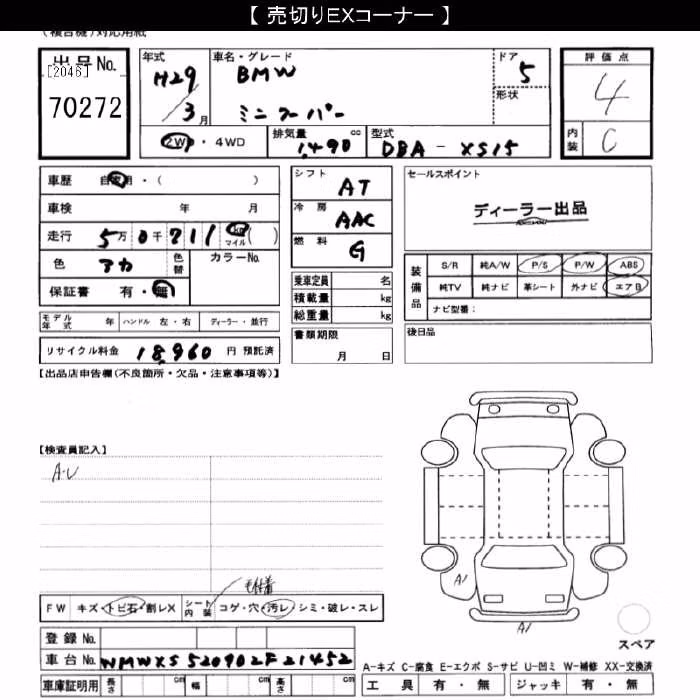 【 売切りEXコーナー 】
(複合機)対応用紙
出品No.
[2046]
70272
年式
H29
3月
車名・グレード
BMW
ミニクーパー
ドア
5
形状
評価点
4
内装
C
2W・4WD
排気量
cc
1,490
型式
DBA - XS15
車歴 自家用・( )
車検 年 月
走行 5万0千711 km マイル ( )
色 アカ
色替
カラーNo.
保証書 有・無
モデル年式 年
ハンドル 左・右
ディーラー・並行
リサイクル料金 18,960 円 預託済
シフト AT
冷房 AAC
燃料 G
乗車定員 名
積載量 kg
総重量 kg
書類期限
月 日
セールスポイント
ディーラー出品
装備品
S/R 純A/W P/S P/W ABS
純TV 純ナビ 革シート 外ナビ エアB
ナビ型番：
後日品
【出品店申告欄(不良箇所・欠品・注意事項等)】
【検査員記入】
A・U
FW キズ・トビ石・割レX
シート内装
コゲ・穴・汚レ・シミ・破レ・スレ
登録No.
車台No. WMWXS520902F21452
車庫証明用
長さ cm
幅 cm
高さ cm
A1
A1
スペア
A-キズ C-腐食 E-エクボ S-サビ U-凹ミ W-補修 XX-交換済
工具 有・無
ジャッキ 有・無